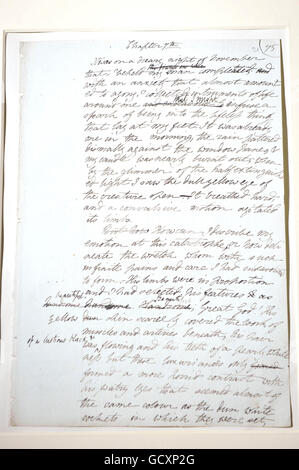 Chapter 7th
It was on a dreary night of November
that I beheld my man completed and
with an anxiety that almost amount
ed to agony, I collect instruments of life
around me
that I might infuse a
spark of being into the lifeless thing
that lay at my feet. It was already
one in the morning, the rain pattered
dismally against the window panes, &
my candle was nearly burnt out, when
by the glimmer of the half extinguish
ed light I saw the dull yellow eye of
the creature open. It breathed hard,
and a convulsive motion agitated
its limbs.
But how How can I describe my
emotion at this catastrophe; or how deli
neate the wretch whom with such
infinite pains and care I had endeavoured
to form. His limbs were in proportion
and I had selected his features as
beautiful
handsome
Beautiful
handsome. Great God! His
yellow dun skin scarcely covered the work of
muscles and arteries beneath; his hair
of a lustrous black &
was flowing and his teeth of a pearly white
ness but these luxuriancies only
formed a more horrid contrast with
his watry eyes that seemed almost of
the same colour as the dun white
sockets in which they were set,
alamy
Image ID: GCXP2G
www.alamy.com